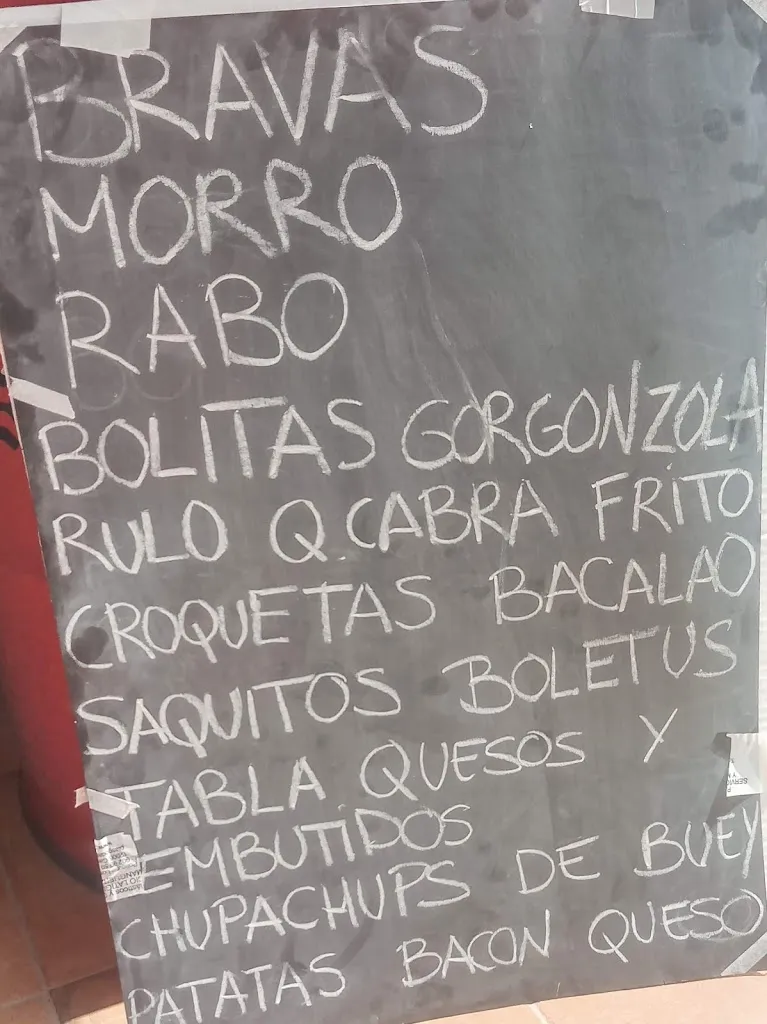 BRAVAS
MORRO
RABO
BOLITAS GORGONZOLA
RULO Q.CABRA FRITO
CROQUETAS BACALAO
SAQUITOS BOLETUS
TABLA QUESOS Y
EMBUTIDOS
CHUPACHUPS DE BUEY
PATATAS BACON QUESO